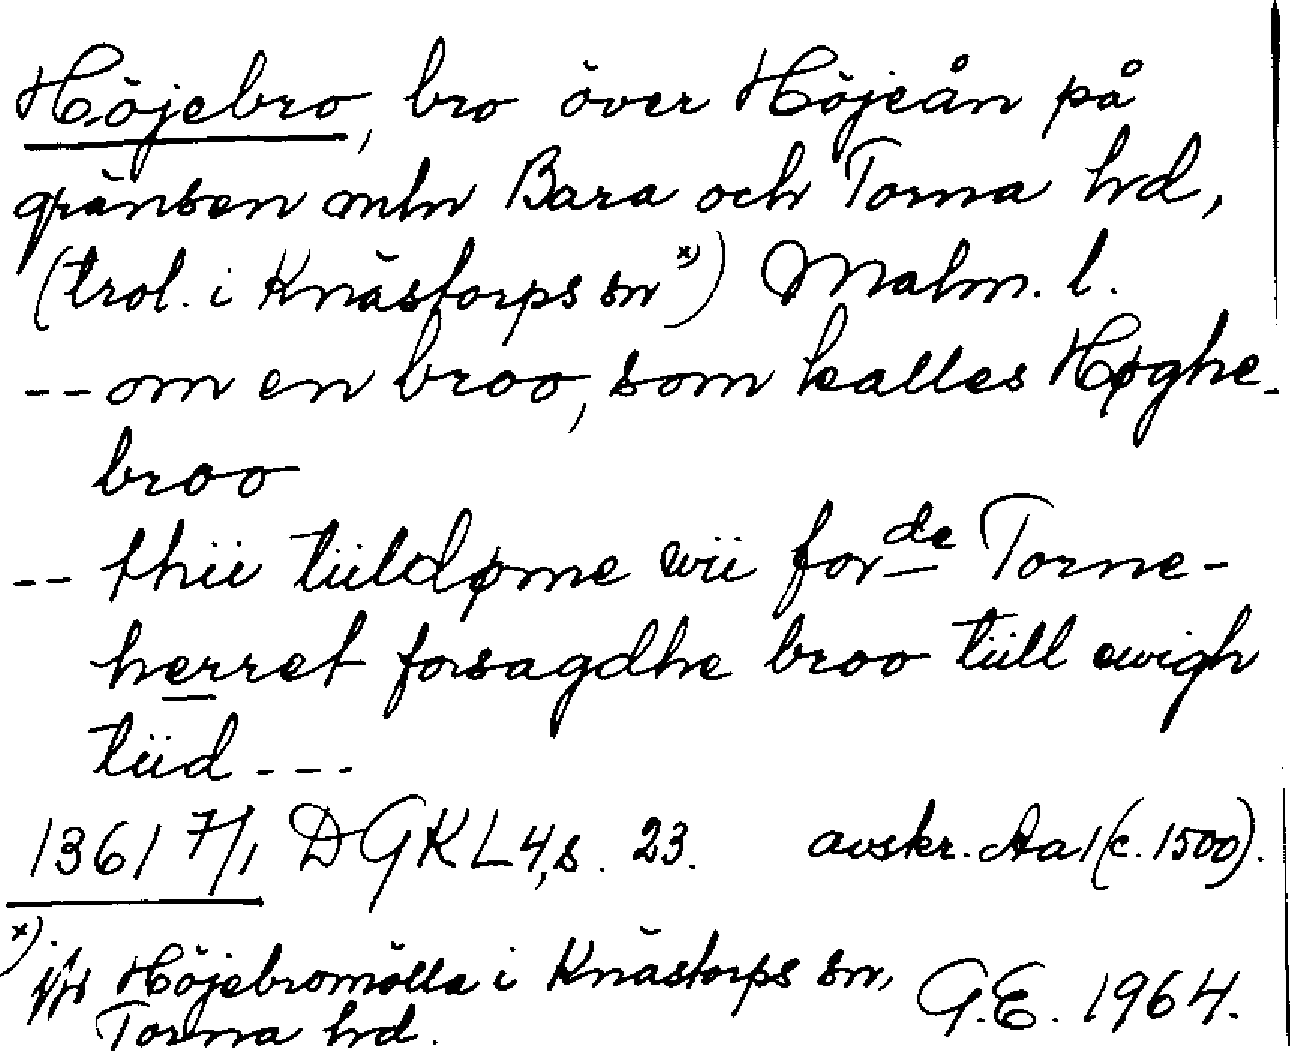 Höjebro, bro över Höjeån på
gränsen mln Bara och Torna hd,
(trol. i Knästorps sn x)) Malm. l.
-- om en broo, som kalles Høghe-
broo
-- thii tiildøme wii forde Torne-
herret forsagdhe broo tiill ewigh
tiid ---
1361 7/1 DGKL 4, s. 23. avskr. Aa 1 (c. 1500).
x) jfr Höjebromölla i Knästorps sn, G.E. 1964.
Torna hd.